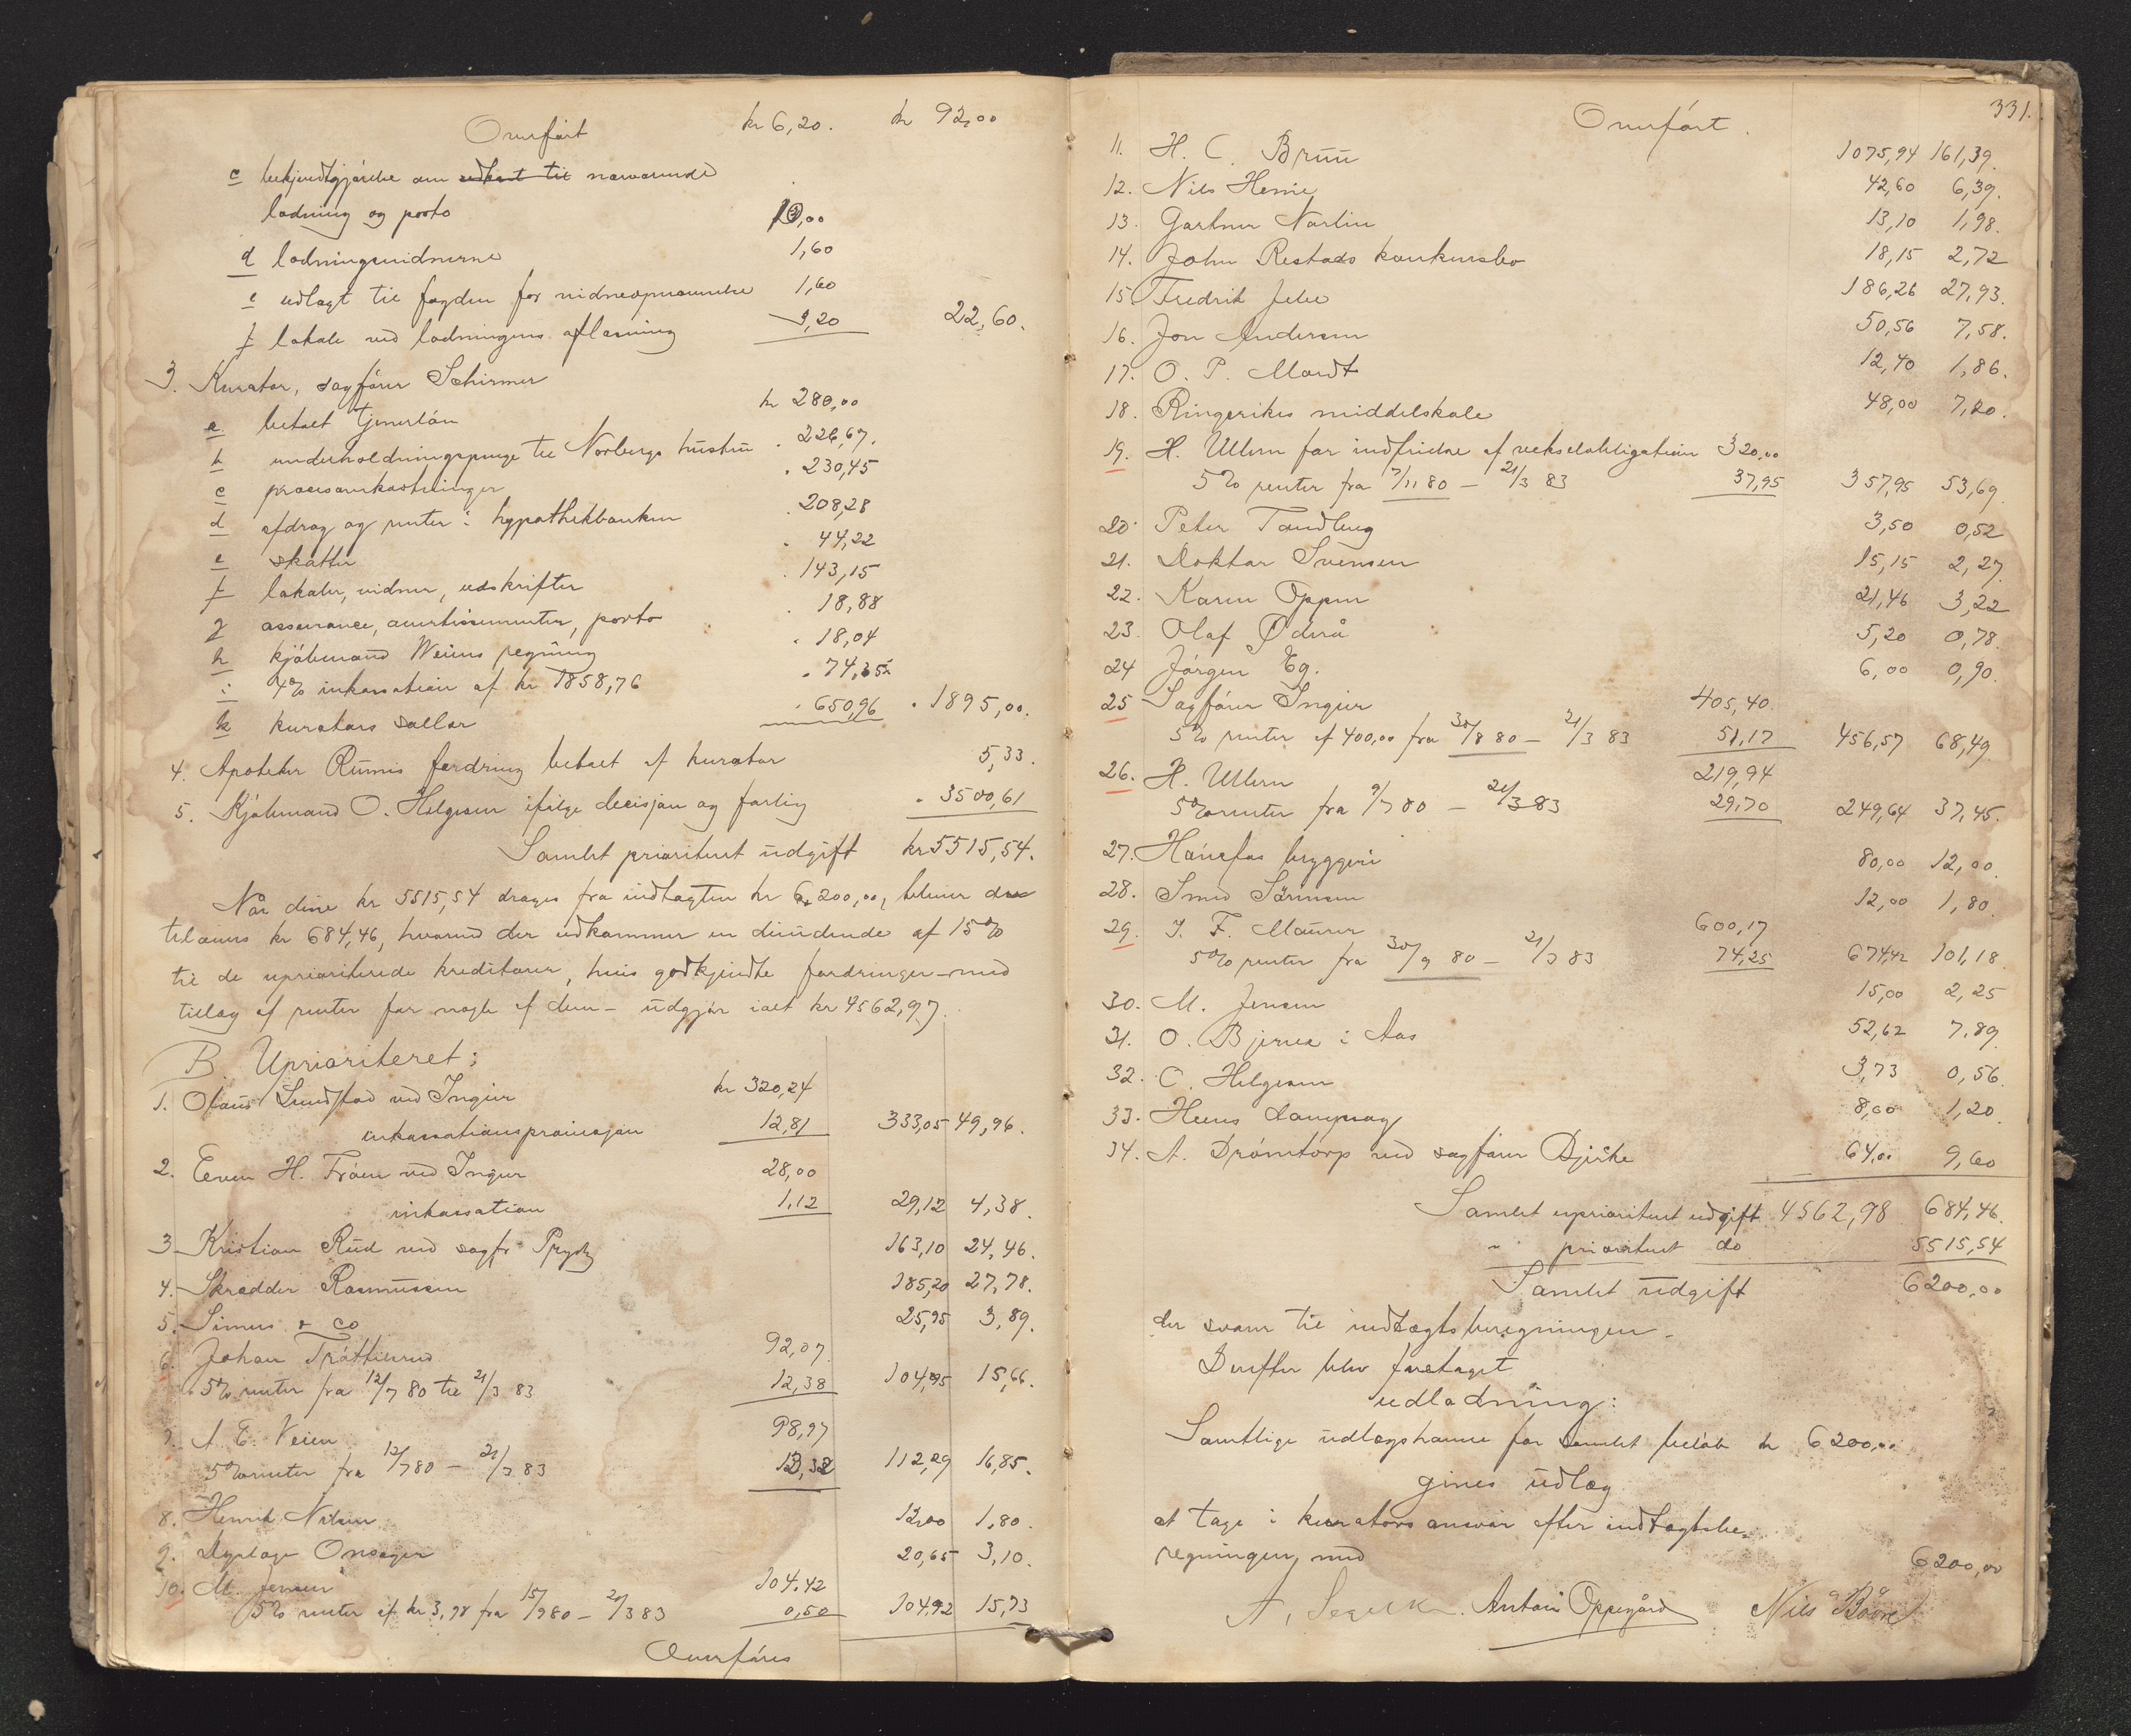 Overført kr 6,20. kr 92,00
c bekjendtgjørelse om udkast til nærværende
lodning og porto 10,00
d lodningsvidnerne 1,60
e udlagt til fogden for vidneopnævnelse 1,60
f lokale ved lodningens aflæsning 3,20 22,60.
3. Kurator, sagfører Schirmer
a betalt tjenerløn kr 280,00
b underholdningspenge til Norbergs hustru . 226,67.
c procesomkostninger . 230,45
d afdrag og renter i hypothekbanken . 208,28
e skatter . 44,22
f lokaler, vidner, udskrifter . 143,15
g assurance, avertissementer, porto . 18,88
h kjøbmand Weiens regning . 18,04
i 4% inkassation af kr 1858,76 . 74,35
k kurators sallær . 650,96 . 1895,00.
4. Apoteker Rumis fordring betalt af kurator 5,33.
5. Kjøbmand O. Helgesen ifølge decisjon og forlig . 3500,61
Samlet prioritert udgift kr 5515,54.
Når disse kr 5515,54 drages fra indtægten kr 6,200,00, bliver der
tilovers kr 684,46, hvorved der udkommer en dividende af 15%
til de uprioriterede kreditorer, hvis godkjendte fordringer – med
tillæg af renter for nogle af dem – udgjør ialt kr 4562,97.
B. Uprioriteret:
1. Olaus Lundstad ved Ingier kr 320,24
inkassationsprovisjon 12,81 333,05 49,96.
2. Even H. Frøen ved Ingier 28,00
inkassation 1,12 29,12 4,38.
3. Kristian Rud ved sagfr Prydz 163,10 24,46.
4. Skrædder Rasmussen 185,20 27,78.
5. Simers & Co 25,95 3,89.
6. Johan Trøttelsrud 92,07
5% renter fra 12/7 80 til 21/3 83 12,38 104,95 15,66.
7. A. E. Veien 98,97
5% renter fra 12/7 80 – 21/3 83 13,32 112,29 16,85.
8. Henrik Nilsen 12,00 1,80.
9. Dyrlæge Onsager 20,65 3,10.
10. M. Jensen 104,42
5% renter af kr 3,98 fra 15/9 80 – 20/3 83 0,50 104,92 15,73
Overføres
331.
Overført.
11. H. C. Bruu 1075,94 161,39.
12. Nils Henie 42,60 6,39.
13. Gartner Norlin 13,10 1,98.
14. John Restads konkursbo 18,15 2,72
15. Fredrik Jelse 186,26 27,93.
16. Jon Andersen 50,56 7,58.
17. O. P. Moudt 12,40 1,86.
18. Ringerikes middelskole 48,00 7,20.
19. H. Ullern for indfrielse af vekselobligation 320,00
5% renter fra 7/11 80 – 21/3 83 37,95 357,95 53,69.
20. Peter Tandberg 3,50 0,52
21. Doktor Svensen 15,15 2,27.
22. Karen Oppen 21,46 3,22
23. Olaf Øderå 5,20 0,78.
24 Jørgen Eg. 6,00 0,90.
25 Sagfører Ingier 405,40.
5% renter af 400,00 fra 30/8 80 – 21/3 83 51,17 456,57 68,49.
26. H. Ullern 219,94
5% renter fra 9/7 80 – 21/3 83 29,70 249,64 37,45.
27. Hønefos bryggeri 80,00 12,00.
28. Smed Sørensen 12,00 1,80.
29. J. F. Maurer 600,17
5% renter fra 30/9 80 – 21/3 83 74,25 674,42 101,18
30. M. Jensen 15,00 2,25
31. O. Bjerke i Aas 52,62 7,89
32. O. Helgesen 3,73 0,56.
33. Heens dampsag 8,00 1,20
34. A. Drømtorp ved sagfører Bjerke 64,00 9,60
Samlet uprioritert udgift 4562,98 684,46.
" prioritert do 5515,54
Samlet udgift 6200,00
der svarer til indtægtsberegningen.
Derefter blev foretaget
udlodning:
Samtlige udlægshavere for samlet beløb kr 6200,00
gives udlæg
at tage i kurators ansvar efter indtægtsbe-
regningen, med 6200,00
Anton Oppegård Nils Båsre